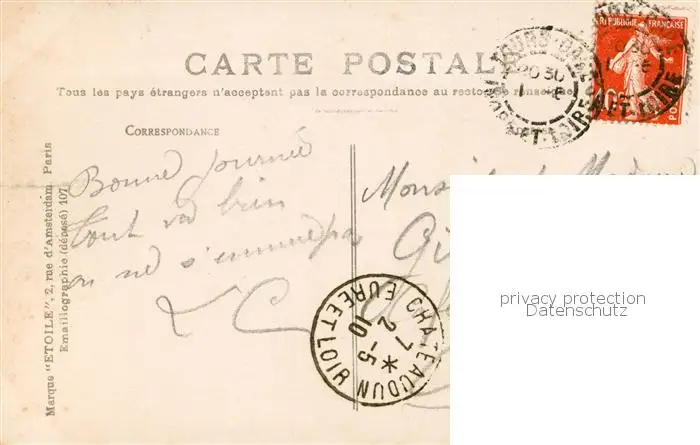 CARTE POSTALE
Tous les pays étrangers n'acceptent pas la correspondance au recto se renseigner
RÉPUBLIQUE FRANÇAISE
CORRESPONDANCE
Bonne journée
tout va bien
on ne s'ennuie pas
Monsieur
CHATEAUDUN
EURE ET LOIR
7 *
2 -5
10
Marque "ETOILE", 2, rue d'Amsterdam, Paris
Emaillographie (déposé) 107
privacy protection
Datenschutz